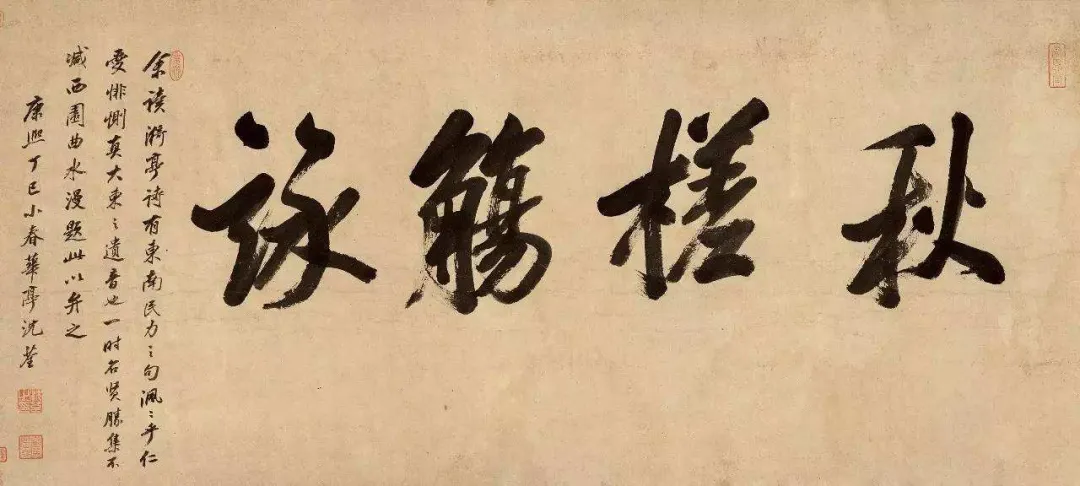 秋槎觴詠
余讀漪亭詩有東南民力之句渢〻乎仁
愛悱惻真大東之遺音也一時名賢勝集不
減西園曲水漫題此以弁之
康熙丁巳小春華亭沈荃